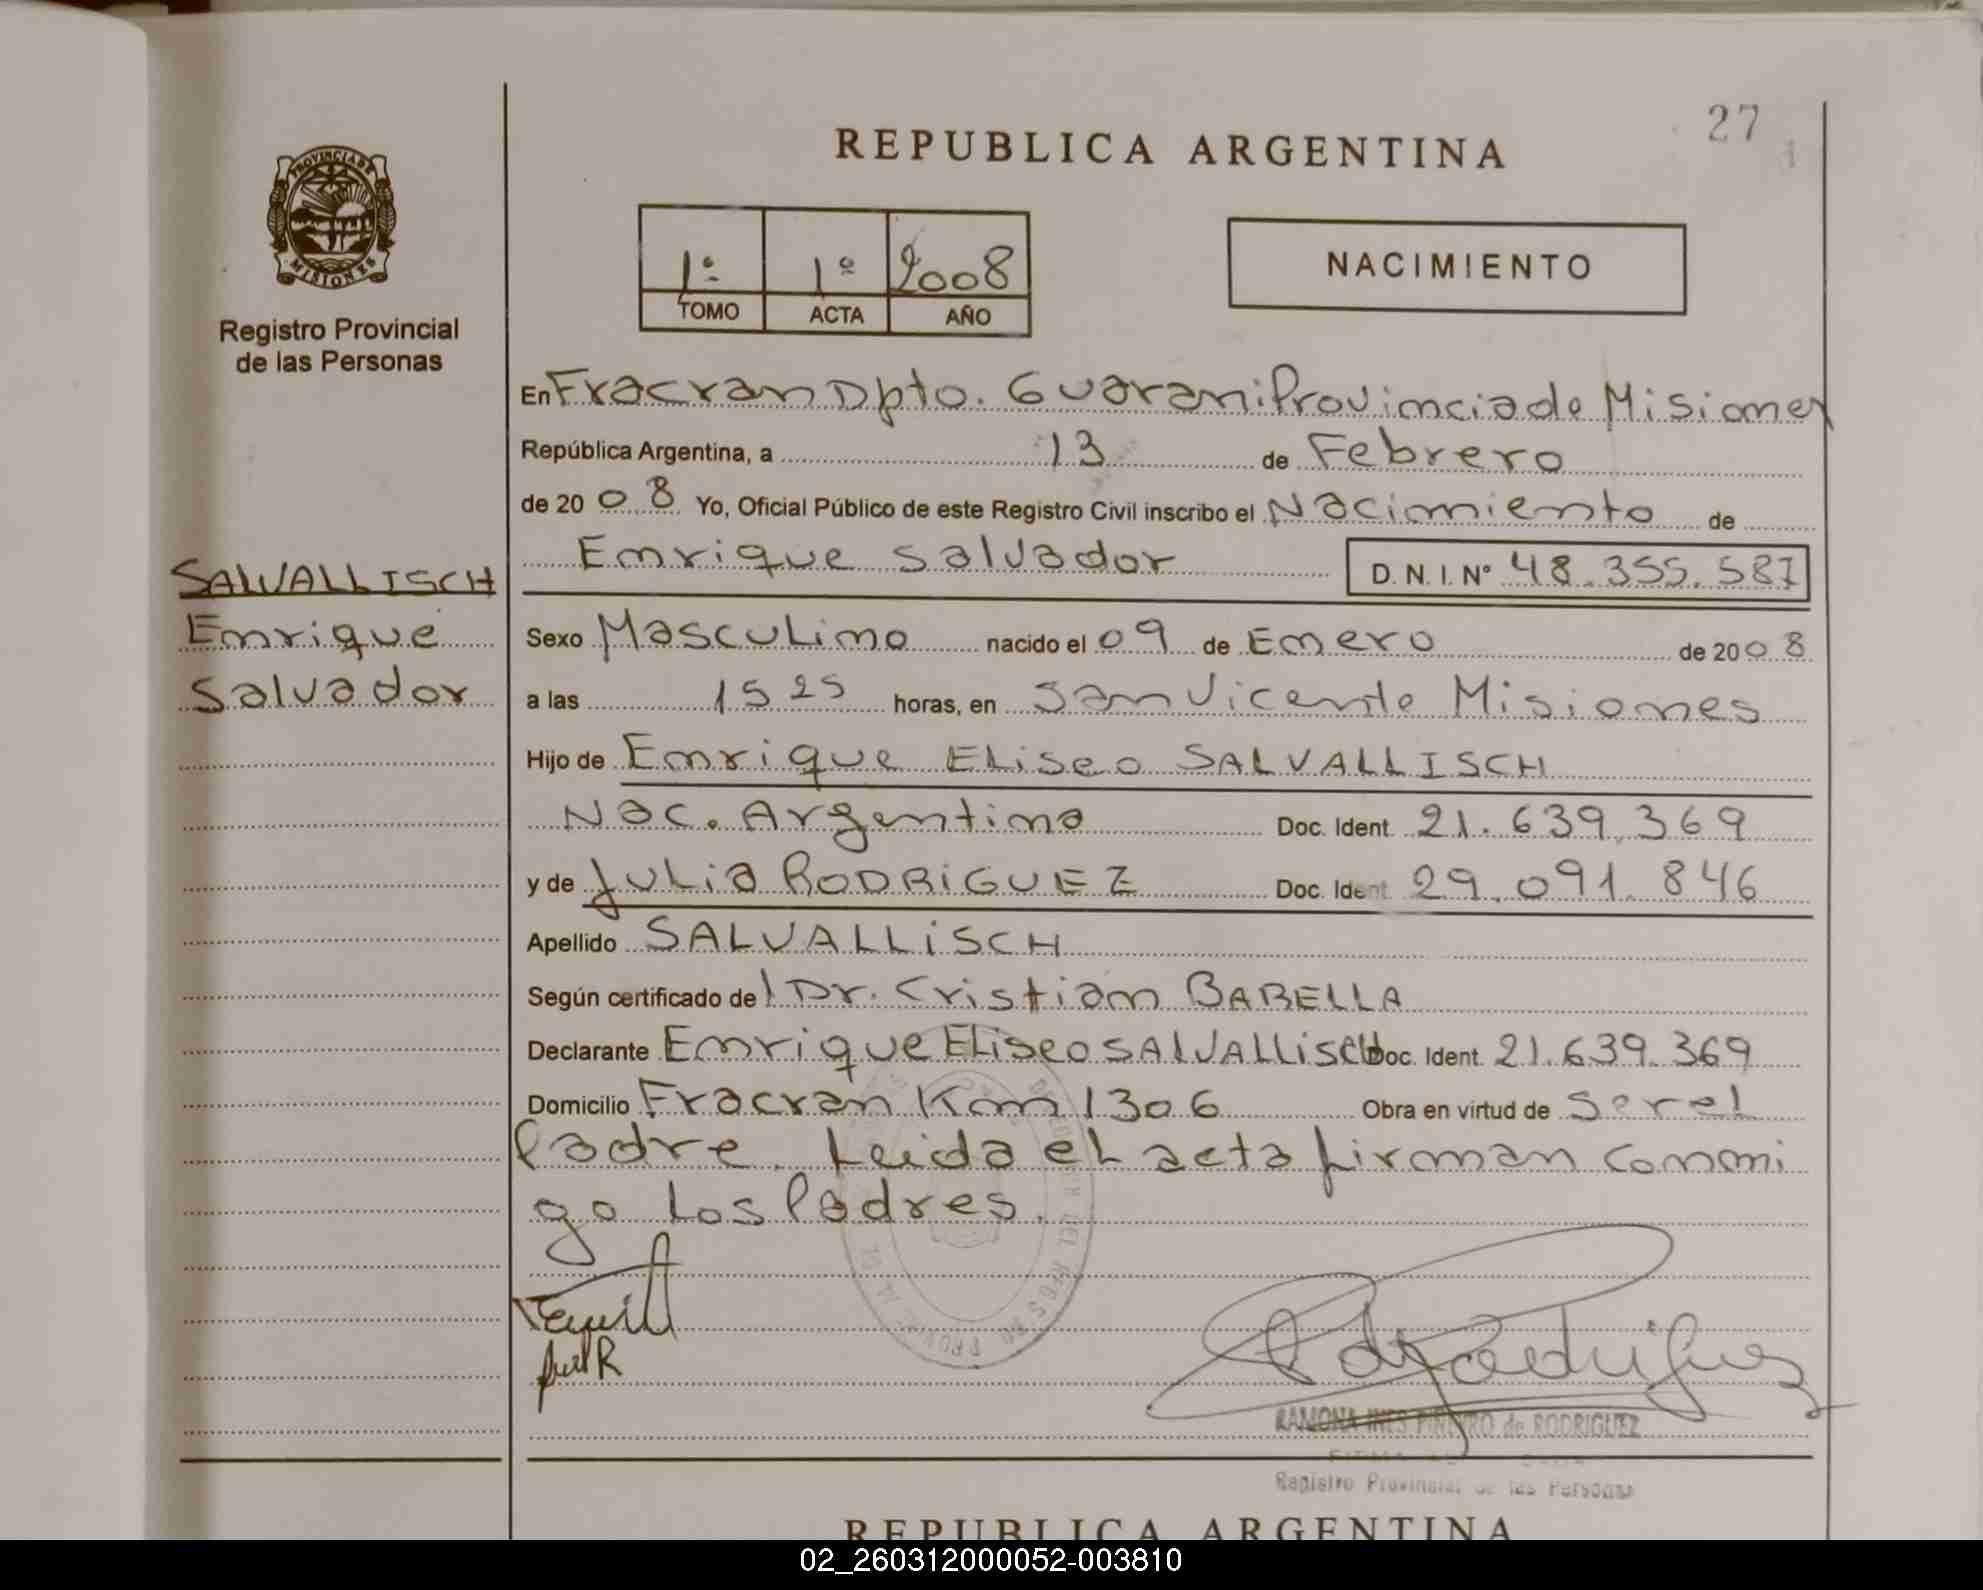 27
REPUBLICA ARGENTINA
PROVINCIA DE
MISIONES
Registro Provincial
de las Personas
1º 1º 2008
TOMO ACTA AÑO
NACIMIENTO
En Fracran Dpto. Guarani Provincia de Misiones
República Argentina, a 13 de Febrero
de 20 08 Yo, Oficial Público de este Registro Civil inscribo el Nacimiento de
Enrique Salvador D.N.I. Nº 48.355.587
SALVALLISCH
Enrique
Salvador
Sexo Masculino nacido el 09 de Enero de 20 08
a las 15 25 horas, en San Vicente Misiones
Hijo de Enrique Eliseo SALVALLISCH
Nac. Argentina Doc. Ident. 21.639.369
y de Julia RODRiGUEZ Doc. Ident. 29.091.846
Apellido SALVALLiSCH
Según certificado del Dr. Cristian BABELLA
Declarante Enrique Eliseo SALVALLiSCH Doc. Ident. 21.639.369
Domicilio Fracran Km 1306 Obra en virtud de Ser el
Padre. Leida el acta firman conmi
go los Padres.
RAMONA INES PIÑEYRO de RODRIGUEZ
Registro Provincial de las Personas
REPUBLICA ARGENTINA
02_260312000052-003810